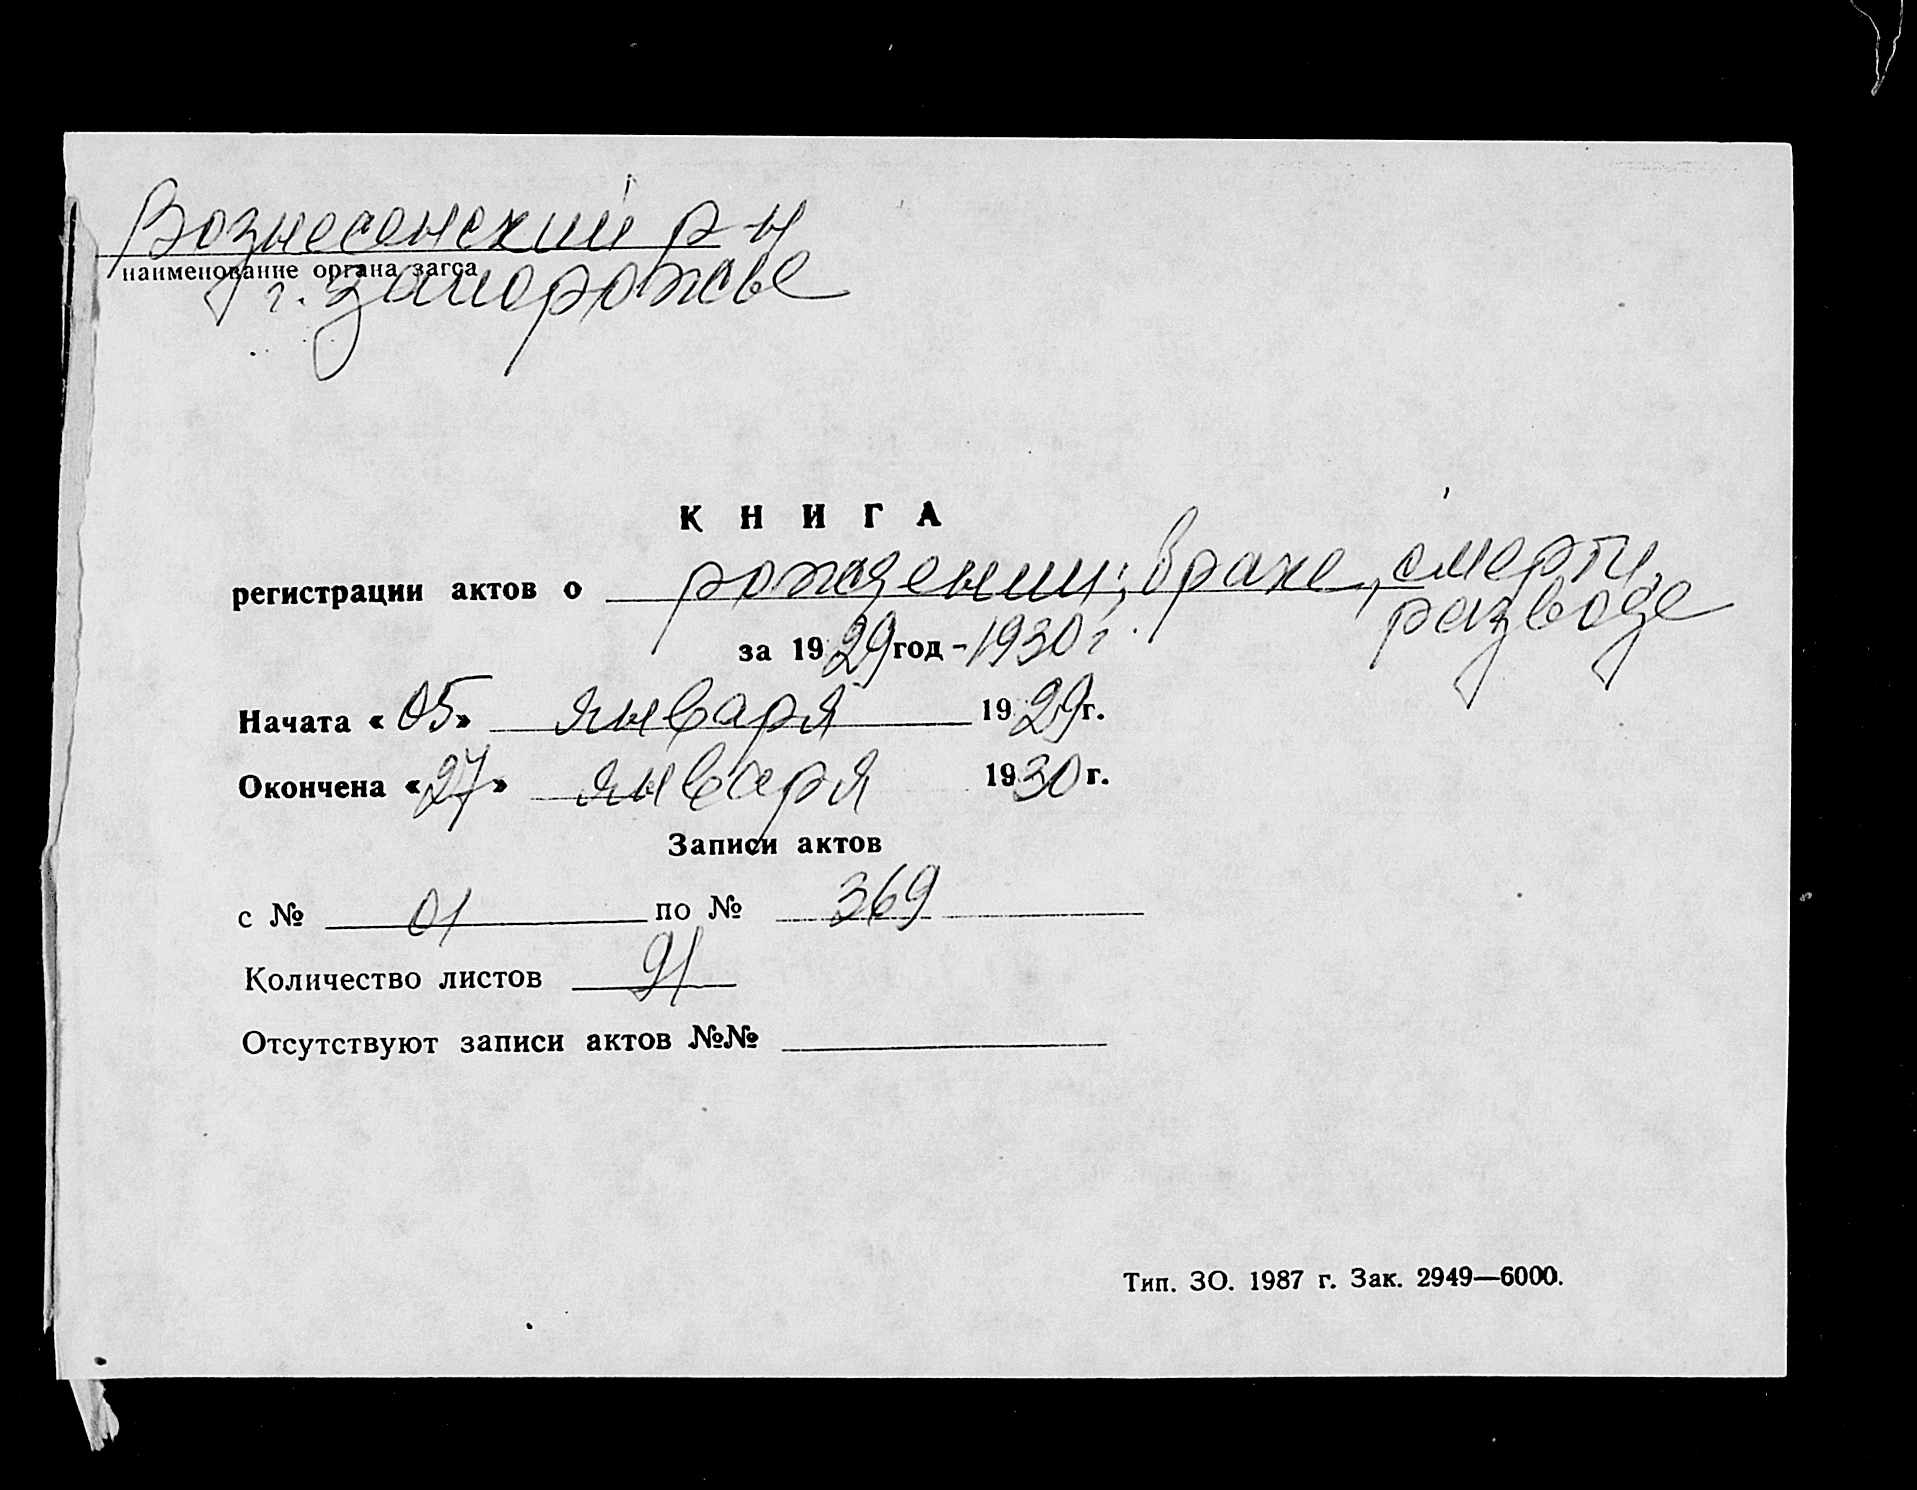 Вознесенский р-н
наименование органа загса
г. Запорожье
КНИГА
регистрации актов о рождении, браке, смерти,
разводе
за 1929 год - 1930 г.
Начата «05» января 1929 г.
Окончена «27» января 1930 г.
Записи актов
с № 01 по № 369
Количество листов 91
Отсутствуют записи актов №№
Тип. ЗО. 1987 г. Зак. 2949—6000.